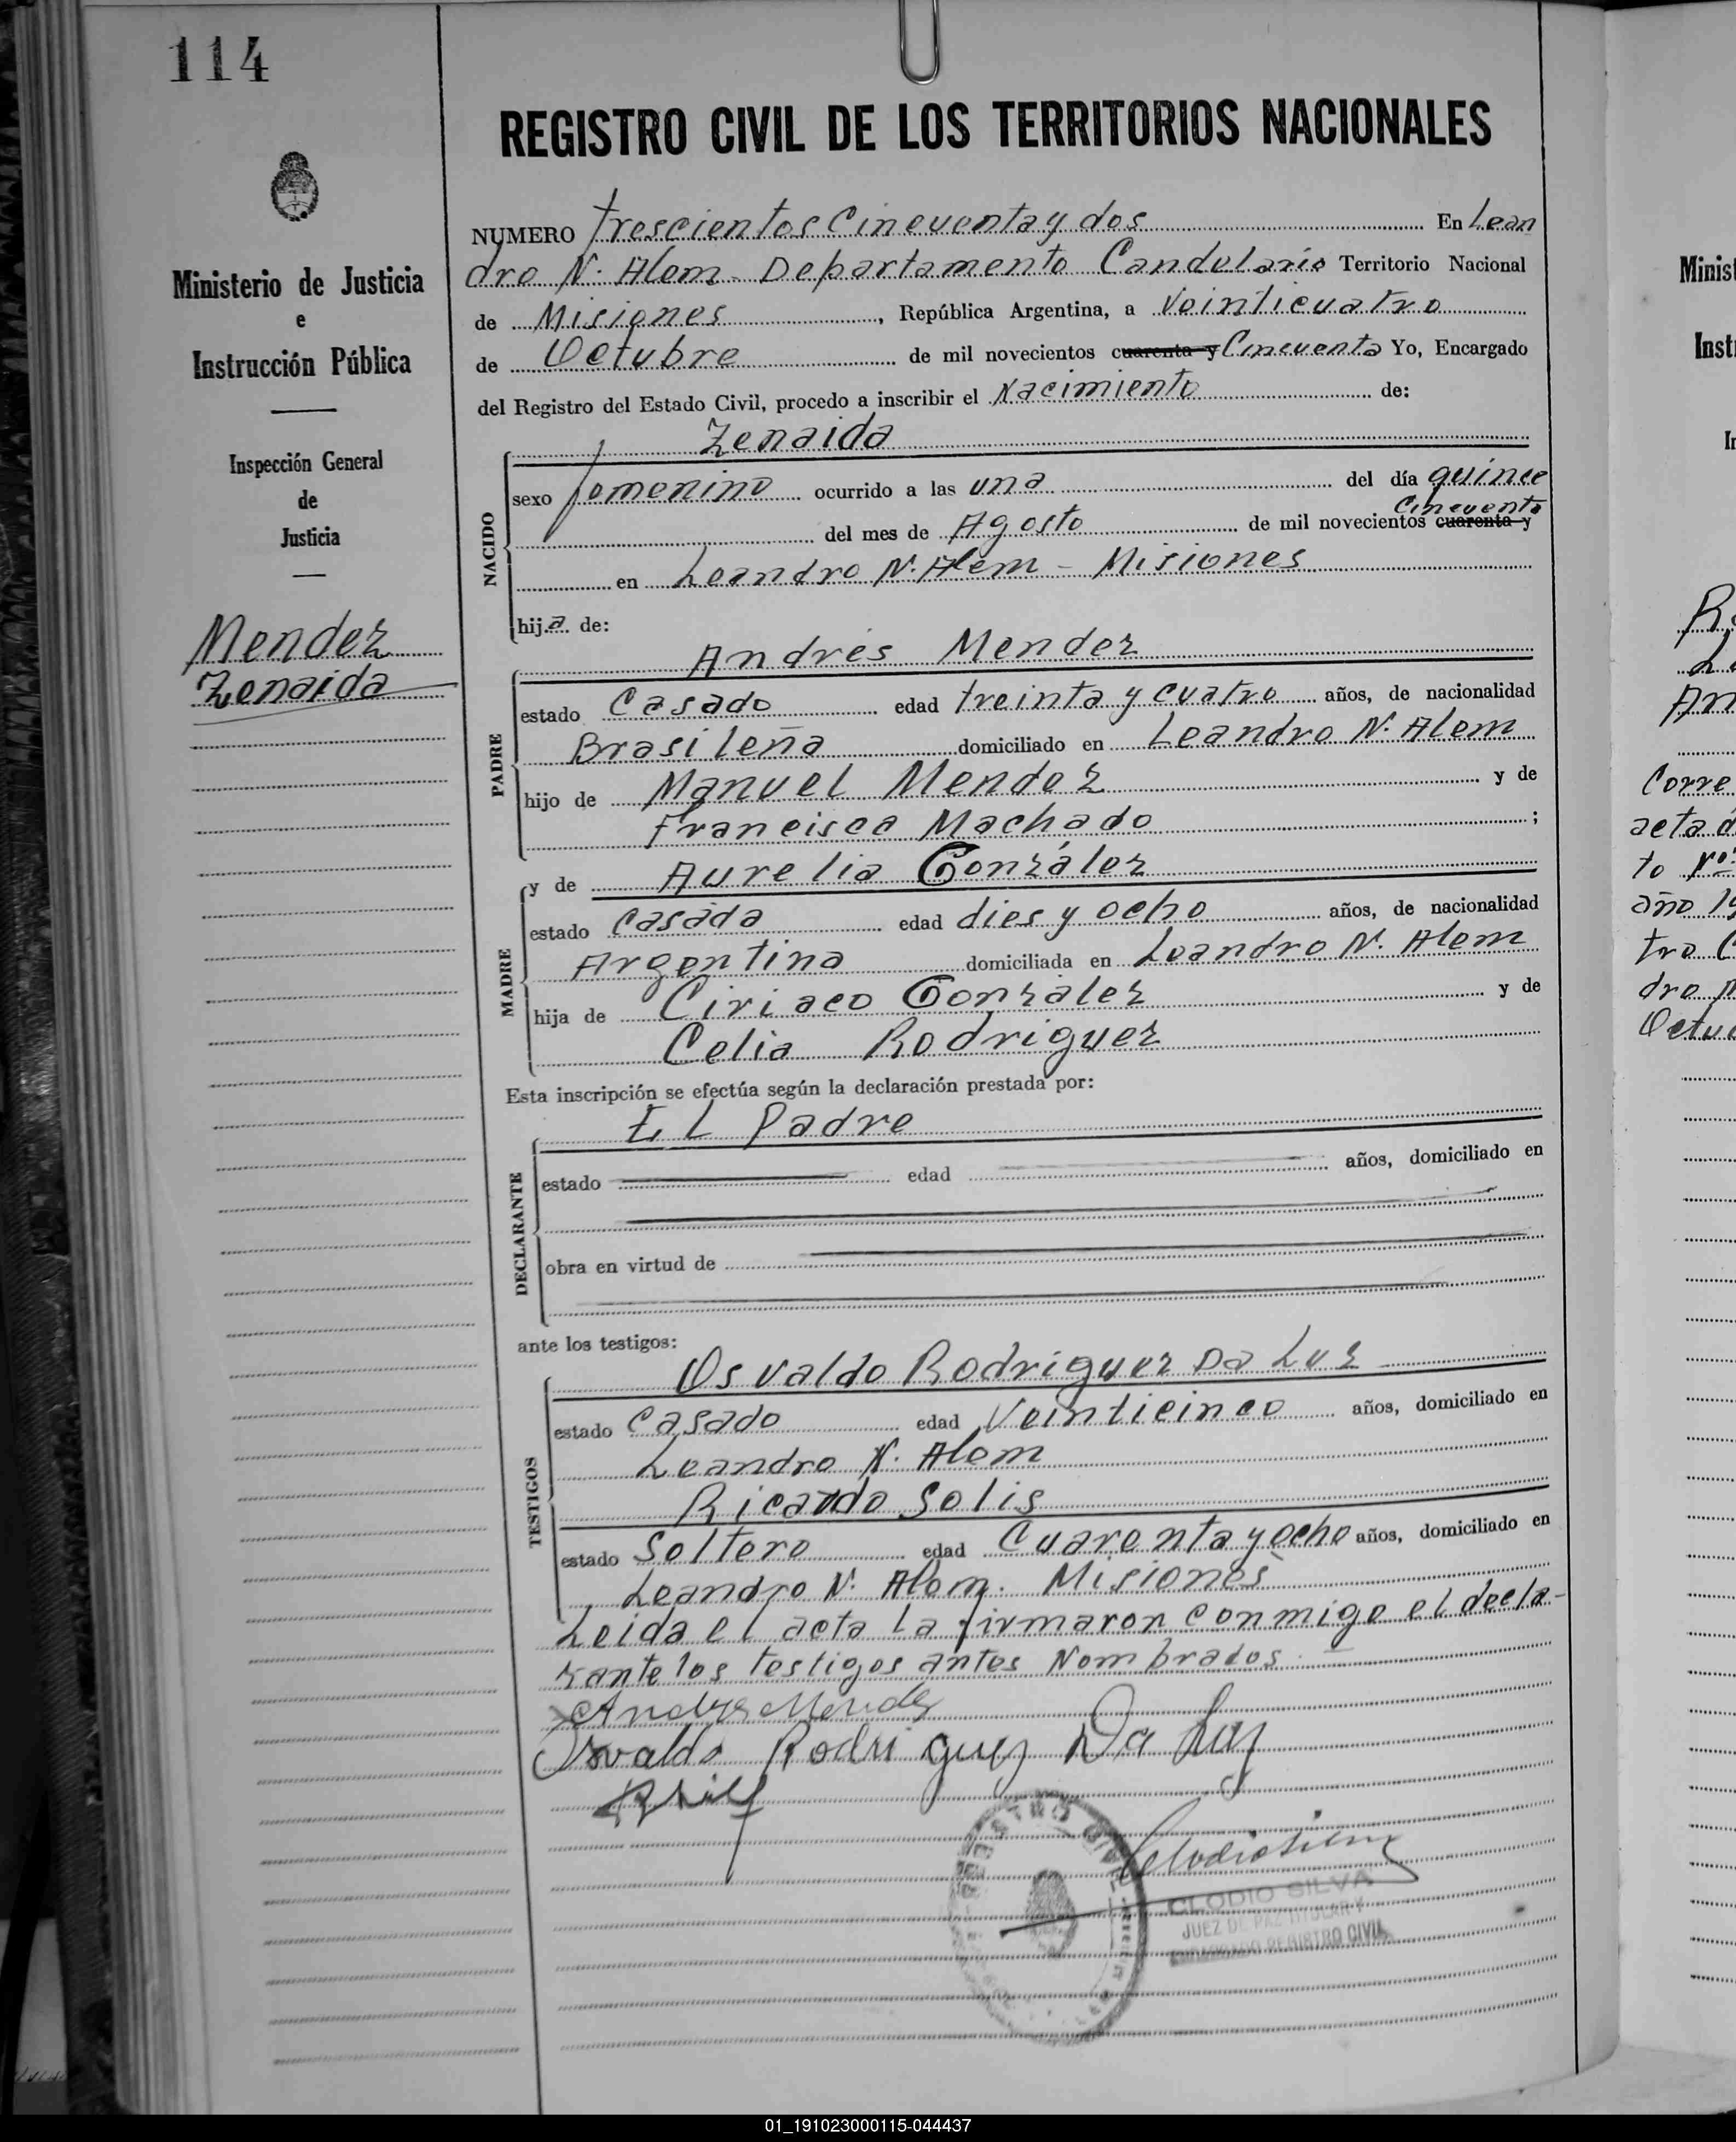 114
REGISTRO CIVIL DE LOS TERRITORIOS NACIONALES
Ministerio de Justicia
e
Instrucción Pública
Inspección General
de
Justicia
Mendez
Zenaida
NUMERO trescientos Cincuenta y dos En Lean
dro N. Alem - Departamento Candelaria Territorio Nacional
de Misiones, República Argentina, a Veinticuatro
de Octubre de mil novecientos cuarenta y Cincuenta Yo, Encargado
del Registro del Estado Civil, procedo a inscribir el Nacimiento de:
Zenaida
NACIDO
sexo femenino ocurrido a las una del día quince
Cincuenta
del mes de Agosto de mil novecientos cuarenta y
en Leandro N. Alem - Misiones
hija de:
Andrés Mendez
PADRE
estado Casado edad treinta y cuatro años, de nacionalidad
Brasileña domiciliado en Leandro N. Alem
hijo de Manuel Mendez y de
Francisca Machado ;
y de Aurelia González
MADRE
estado Casada edad dies y ocho años, de nacionalidad
Argentina domiciliada en Leandro N. Alem
hija de Ciriaco Gonzalez y de
Celia Rodriguez
Esta inscripción se efectúa según la declaración prestada por:
EL Padre
DECLARANTE
estado edad años, domiciliado en
obra en virtud de
ante los testigos:
Osvaldo Rodriguez Da Luz
TESTIGOS
estado Casado edad Veinticinco años, domiciliado en
Leandro N. Alem
Ricardo Solis
estado Soltero edad Cuarenta y ocho años, domiciliado en
Leandro N. Alem. Misiones
Leida el acta la firmaron conmigo el decla-
rante los testigos antes Nombrados.
Andres Mendez
Osvaldo Rodriguez Da Luz
Clodio Silva
CLODIO SILVA
JUEZ DE PAZ TITULAR Y
ENCARGADO REGISTRO CIVIL
Minist
Inst
Corre
acta d
to Nº
año 19
tro C
dro N
Octu
01_191023000115-044437